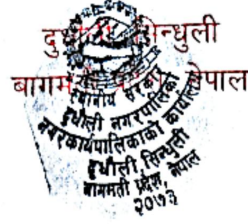 दुधौली, सिन्धुली
बागमती प्रदेश, नेपाल
स्थानीय सरकार
दुधौली नगरपालिका
नगरकार्यपालिकाको कार्यालय
दुधौली, सिन्धुली
बागमती प्रदेश, नेपाल
२०७३